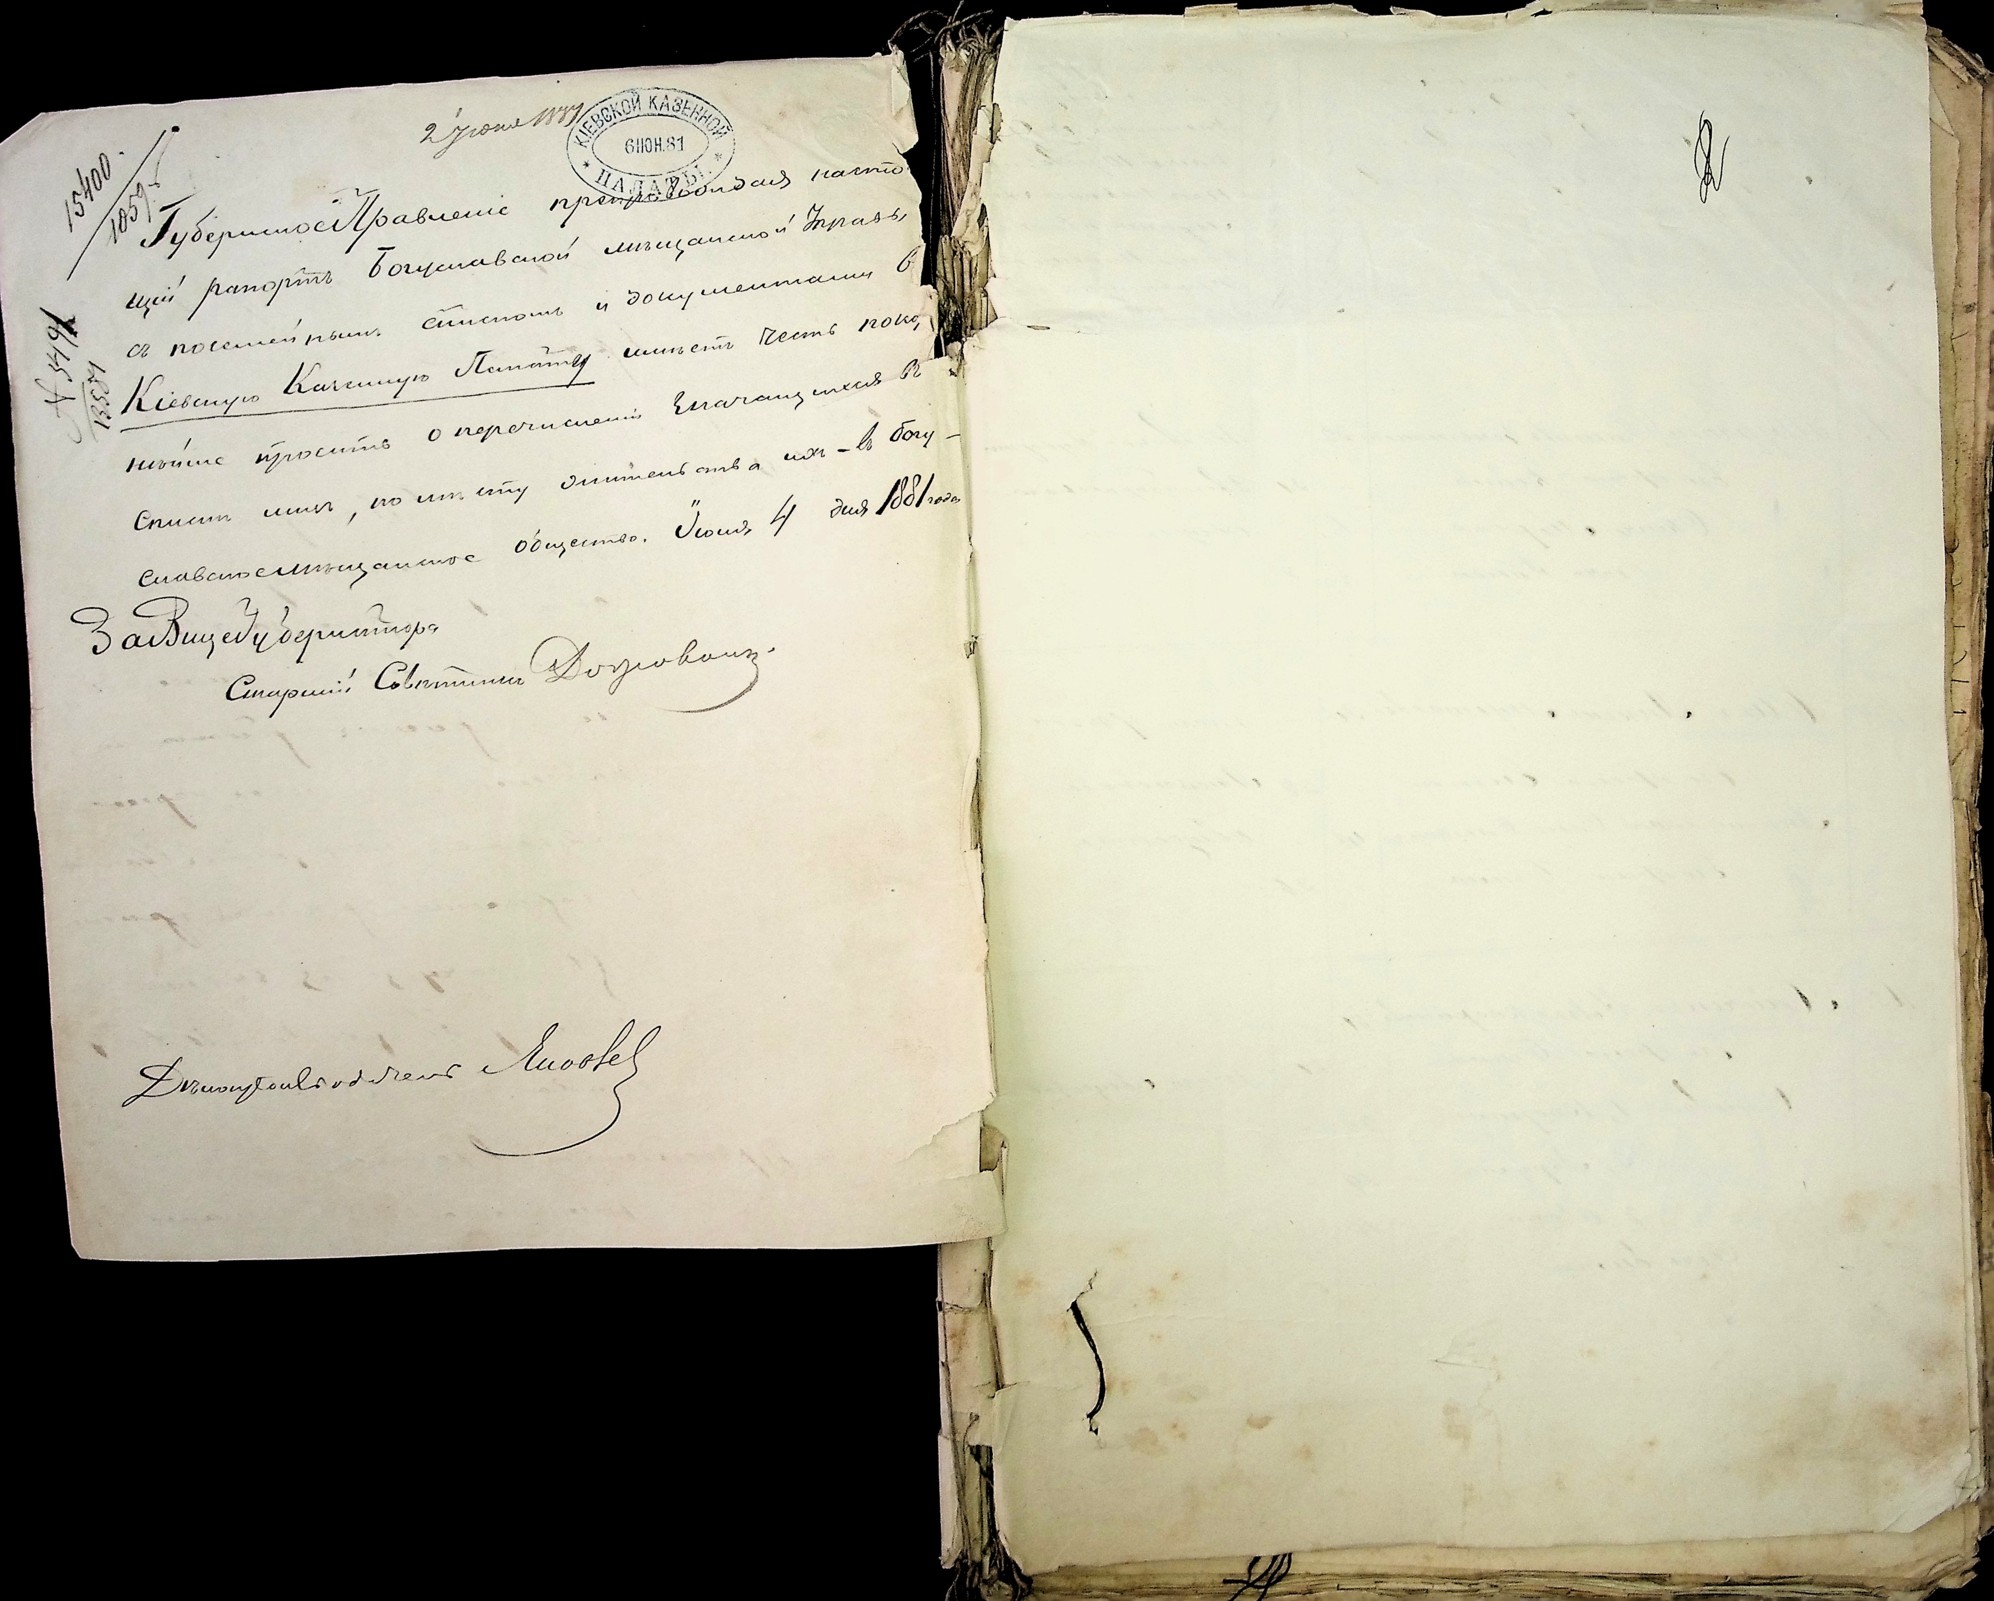 15400
1059
2 Июня 1881
КІЕВСКОЙ КАЗЕННОЙ
6 ІЮН. 81
ПАЛАТЫ.
Губернское Правленіе препровождая насто
щій рапортъ Богуславской мѣщанской Управы
съ посемейнымъ спискомъ и документами въ
Кіевскую Казенную Палату имѣетъ честь покор
нѣйше просить о перечисленіи значащихся въ
спискѣ лицъ, по мѣсту жительства ихъ – въ Богу-
славское мѣщанское общество. Іюня 4 дня 1881 года
За Вице Губернатора
Старшій Совѣтникъ
Дѣлопроизводитель